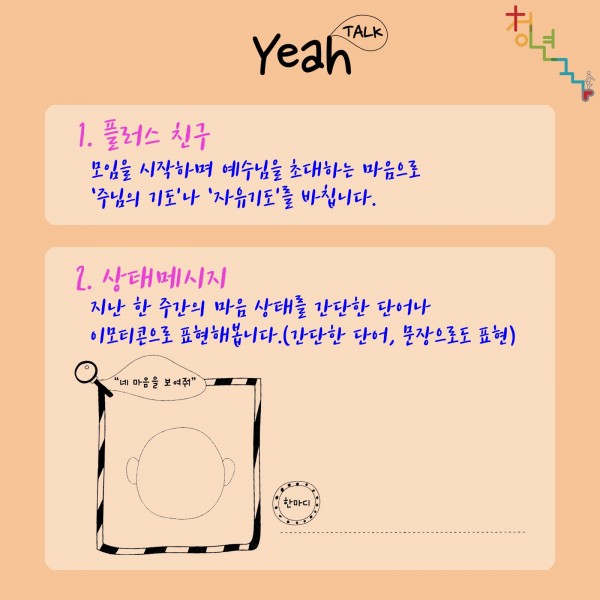 Yeah
TALK
청년
1. 플러스 친구
모임을 시작하며 예수님을 초대하는 마음으로
'주님의 기도'나 '자유기도'를 바칩니다.
2. 상태메시지
지난 한 주간의 마음 상태를 간단한 단어나
이모티콘으로 표현해봅니다.(간단한 단어, 문장으로도 표현)
"네 마음을 보여줘"
한마디